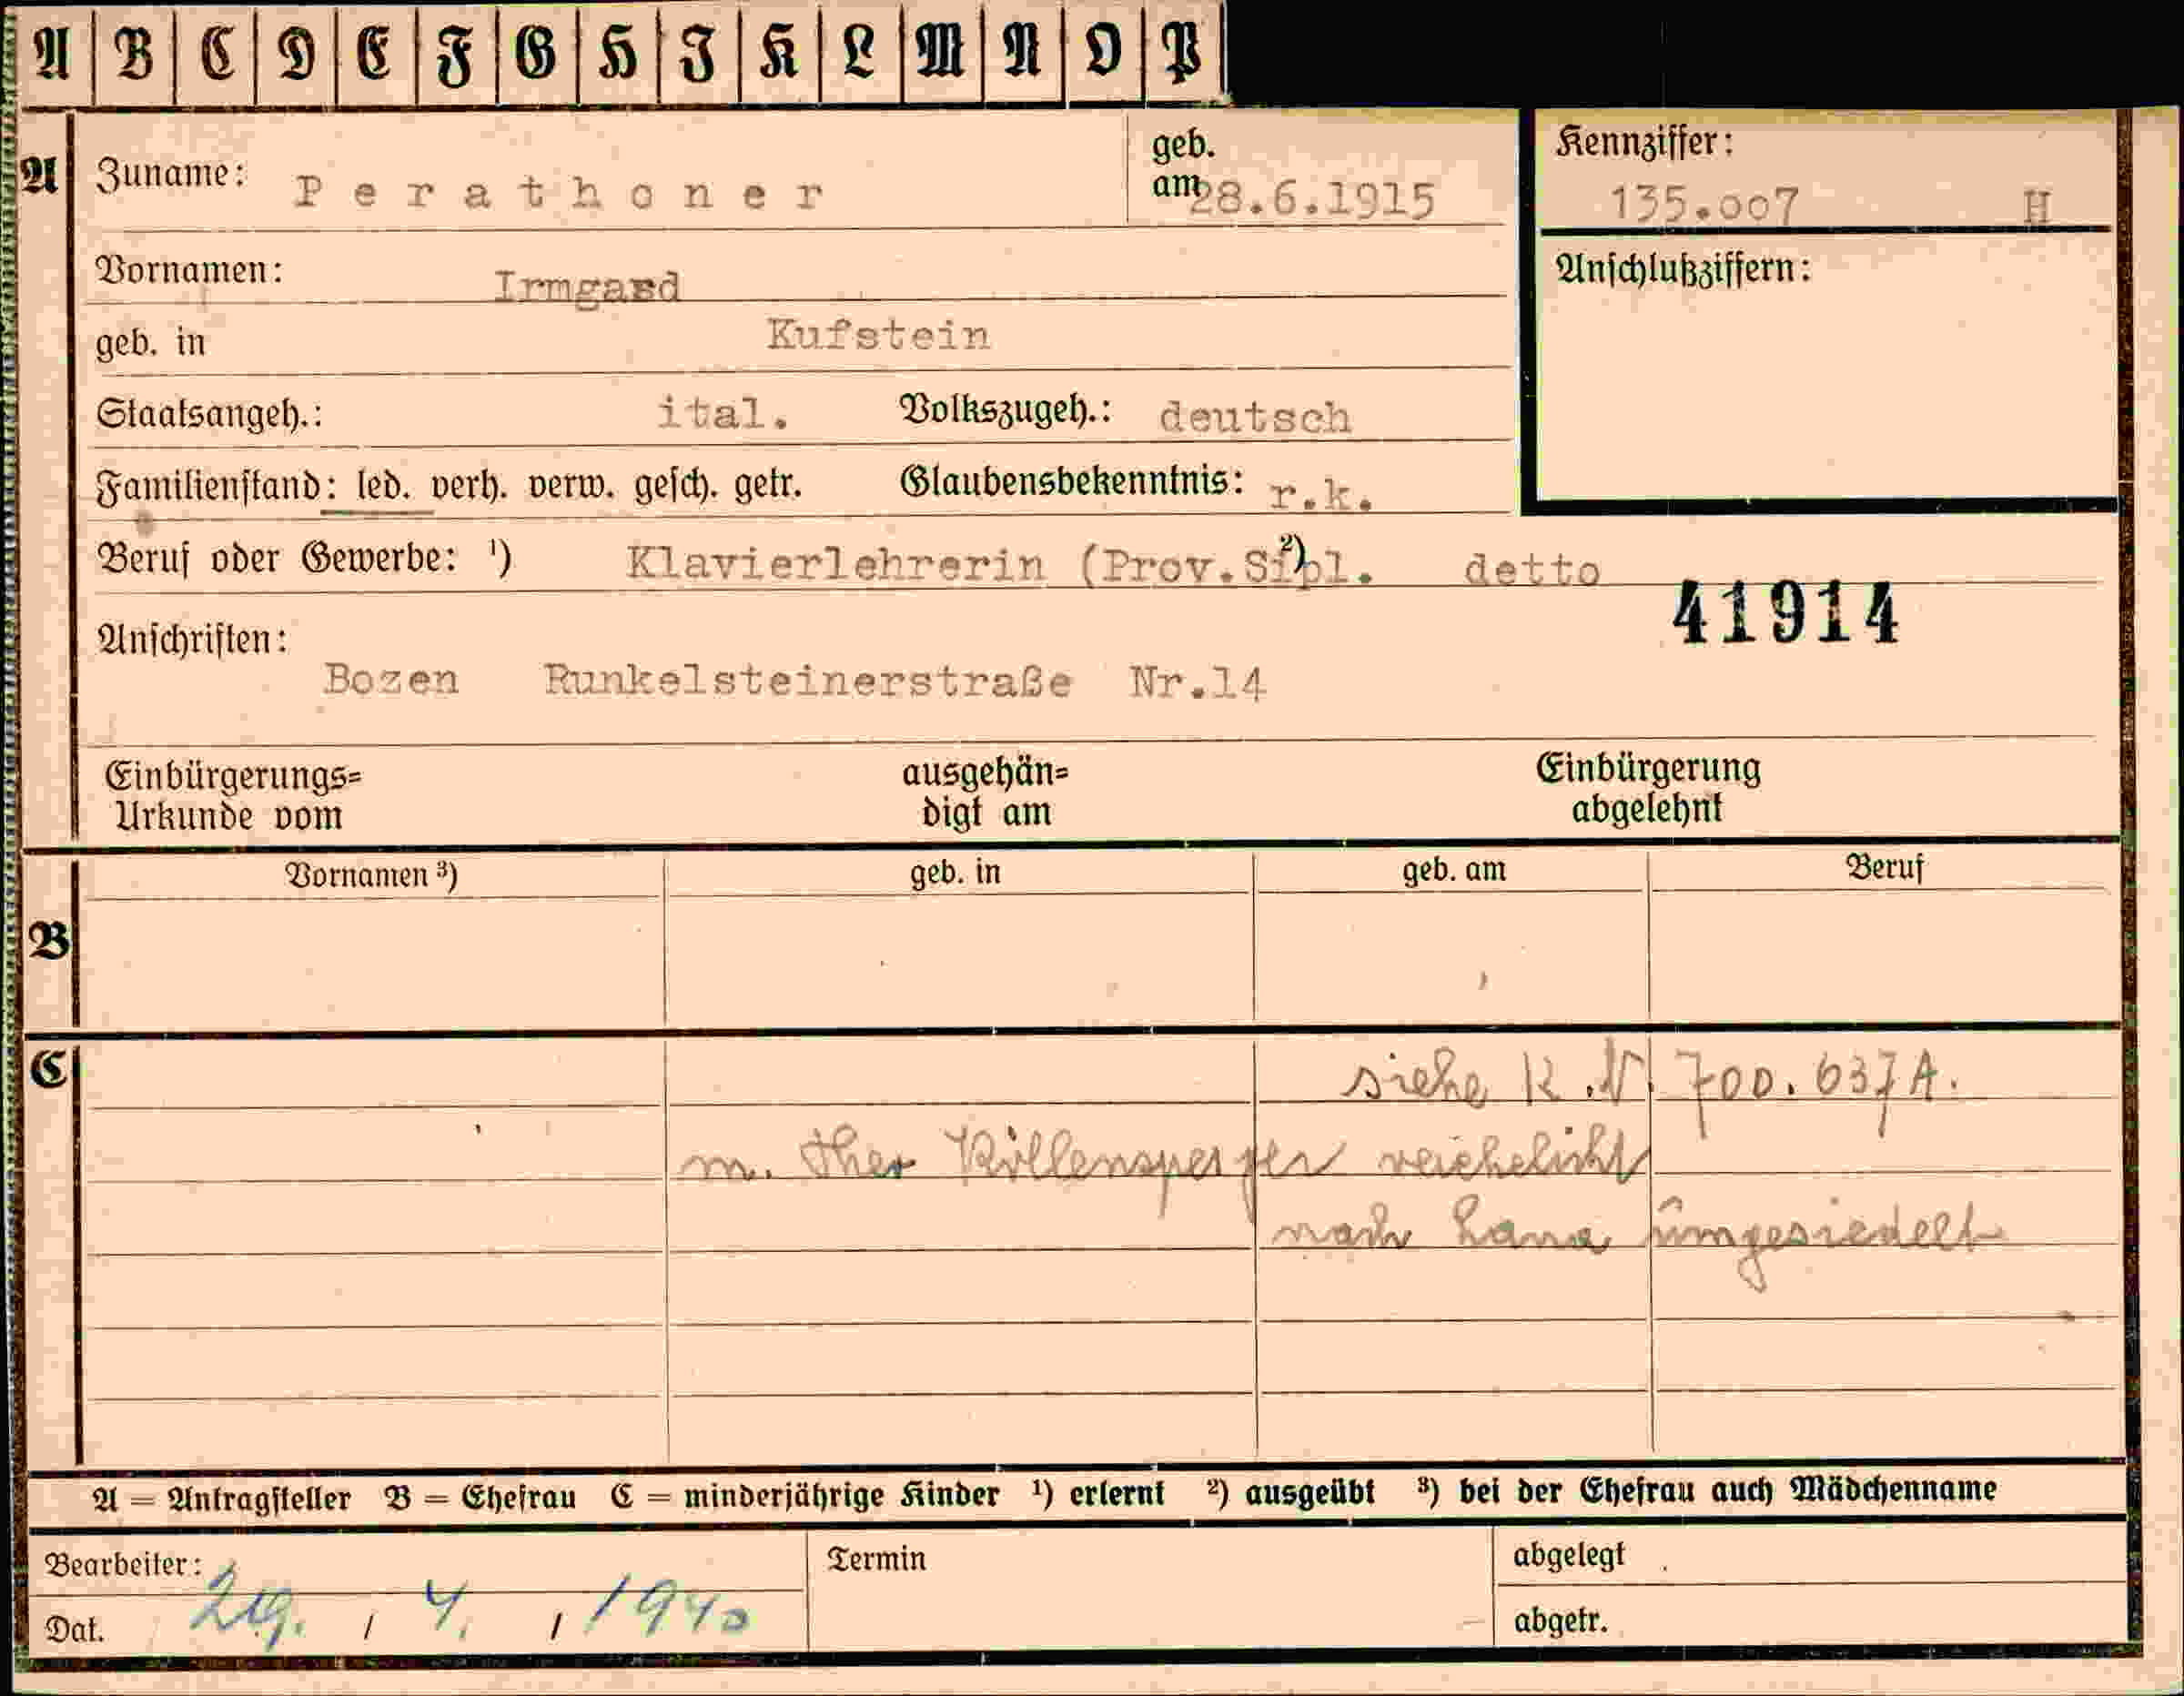 A B C D E F G H I K L M N O P
A Zuname: Perathoner geb. am 28.6.1915 Kennziffer: 135.007 H
Vornamen: Irmgard Anschlußziffern:
geb. in Kufstein
Staatsangeh.: ital. Volkszugeh.: deutsch
Familienstand: led. verh. verw. gesch. getr. Glaubensbekenntnis: r.k.
Beruf oder Gewerbe: ¹) Klavierlehrerin (Prov. ²) detto
41914
Anschriften:
Bozen Runkelsteinerstraße Nr.14
Einbürgerungs= ausgehän= Einbürgerung
Urkunde vom digt am abgelehnt
Vornamen ³) geb. in geb. am Beruf
B
C siehe K.N. 700.637 A.
m. verehelicht
nach Lana umgesiedelt
A = Antragsteller B = Ehefrau C = minderjährige Kinder ¹) erlernt ²) ausgeübt ³) bei der Ehefrau auch Mädchenname
Bearbeiter: Termin abgelegt
Dat. 29. / 4. / 1940 abgetr.